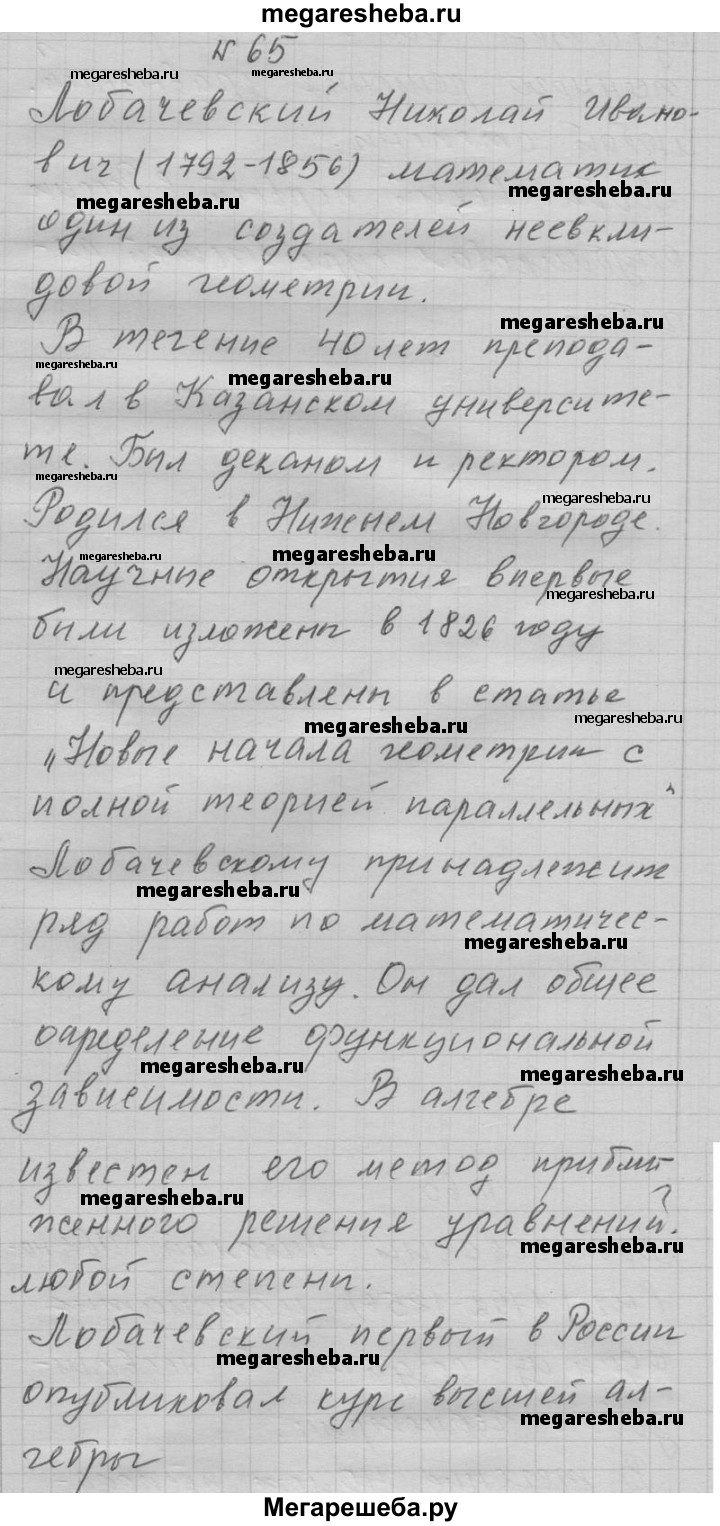 megaresheba.ru
N 65
megaresheba.ru megaresheba.ru
Лобачевский Николай Ивано-
вич (1792-1856) математик
megaresheba.ru megaresheba.ru
один из создателей неевкли-
довой геометрии.
megaresheba.ru
В течение 40 лет препода-
megaresheba.ru megaresheba.ru
вал в Казанском университе-
те. Был деканом и ректором.
megaresheba.ru megaresheba.ru
Родился в Нижнем Новгороде.
megaresheba.ru megaresheba.ru
Научные открытия впервые
megaresheba.ru
были изложены в 1826 году
megaresheba.ru
и представлены в статье
megaresheba.ru megaresheba.ru
„Новые начала геометрии с
полной теорией параллельных"
Лобачевскому принадлежит
megaresheba.ru
ряд работ по математичес-
megaresheba.ru
кому анализу. Он дал общее
определение функциональной
megaresheba.ru megaresheba.ru
зависимости. В алгебре
известен его метод прибли-
megaresheba.ru
женного решения уравнений.
megaresheba.ru
любой степени.
Лобачевский первый в России
megaresheba.ru
опубликовал курс высшей ал-
megaresheba.ru
гебры
Мегарешеба.ру